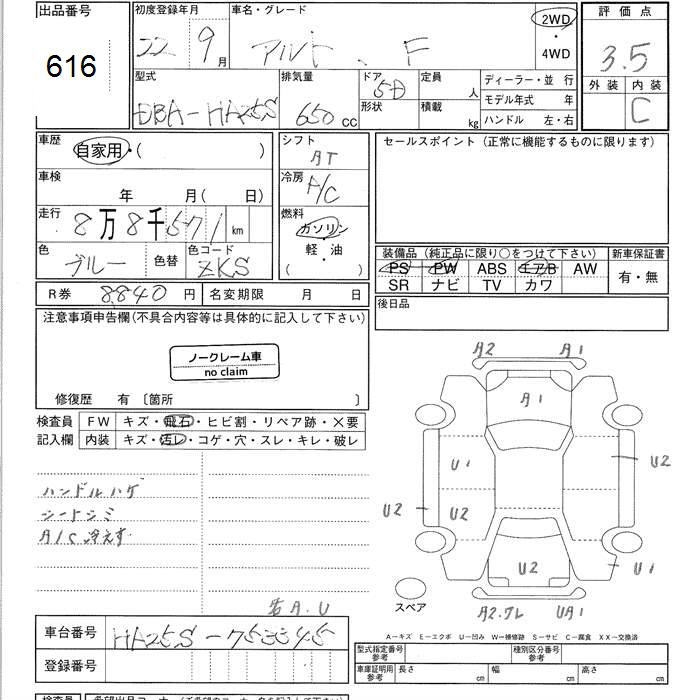 出品番号
616
初度登録年月
22 9月
車名・グレード
アルト、F
2WD
・
4WD
評価点
3.5
外装 内装
C
型式
DBA-HA25S
排気量
650cc
ドア
5D
形状
定員
人
積載
kg
ディーラー・並 行
モデル年式 年
ハンドル 左・右
車歴
自家用・( )
シフト
AT
セールスポイント (正常に機能するものに限ります)
車検
年 月( 日)
冷房
A/C
走行
8万8千571km
燃料
ガソリン
・
軽・油
( )
色
ブルー
色替
色コード
ZKS
装備品 (純正品に限り○をつけて下さい)
PS PW ABS エアB AW
SR ナビ TV カワ
新車保証書
有・無
R券 8840円
名変期限 月 日
後日品
注意事項申告欄(不具合内容等は具体的に記入して下さい)
ノークレーム車
no claim
修復歴 有 〔箇所 〕
検査員
記入欄
FW キズ・飛石・ヒビ割・リペア跡・×要
内装 キズ・汚レ・コゲ・穴・スレ・キレ・破レ
ハンドルハゲ
シートシミ
A/C冷えず
A2 A1
A1
U1
U2
U2
U2
U2
U1
A2.
UA1
スペア
A.U
A-キズ E-エクボ U-凹み W-補修跡 S-サビ C-腐食 XX-交換済
車台番号
HA25S-753345
登録番号
型式指定番号
参考
種別区分番号
参考
車庫証明用
参考
長さ cm
幅 cm
高さ cm